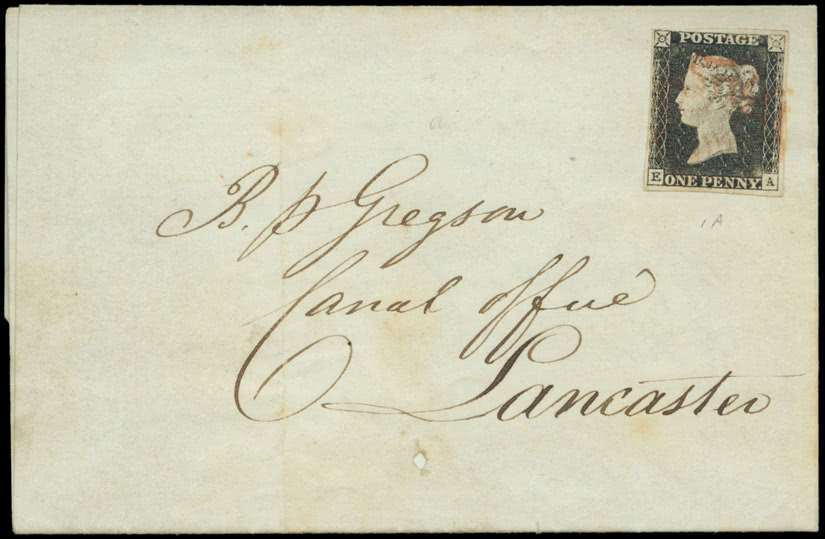 POSTAGE
E ONE PENNY. A
1A
a
B. P. Gregson
Canal office
Lancaster